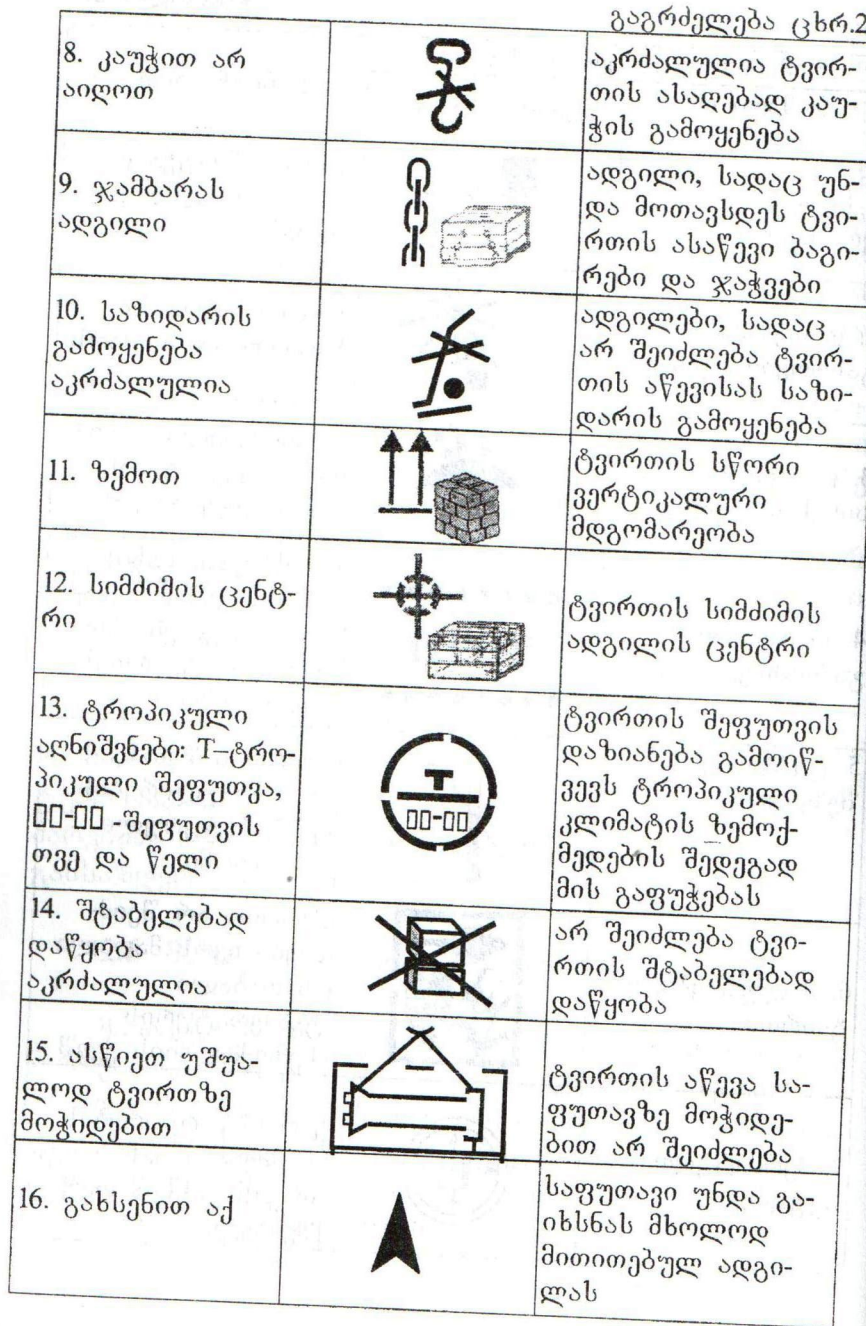 გაგრძელება ცხრ.2
8. კაუჭით არ
აიღოთ
აკრძალულია ტვირ-
თის ასაღებად კაუ-
ჭის გამოყენება
9. ჯამბარას
ადგილი
ადგილი, სადაც უნ-
და მოთავსდეს ტვი-
რთის ასაწევი ბაგი-
რები და ჯაჭვები
10. საზიდარის
გამოყენება
აკრძალულია
ადგილები, სადაც
არ შეიძლება ტვირ-
თის აწევისას საზი-
დარის გამოყენება
11. ზემოთ
ტვირთის სწორი
ვერტიკალური
მდგომარეობა
12. სიმძიმის ცენტ-
რი
ტვირთის სიმძიმის
ადგილის ცენტრი
13. ტროპიკული
აღნიშვნები: T–ტრო-
პიკული შეფუთვა,
▯▯-▯▯ -შეფუთვის
თვე და წელი
T
▯▯-▯▯
ტვირთის შეფუთვის
დაზიანება გამოიწ-
ვევს ტროპიკული
კლიმატის ზემოქ-
მედების შედეგად
მის გაფუჭებას
14. შტაბელებად
დაწყობა
აკრძალულია
არ შეიძლება ტვი-
რთის შტაბელებად
დაწყობა
15. ასწიეთ უშუა-
ლოდ ტვირთზე
მოჭიდებით
ტვირთის აწევა სა-
ფუთავზე მოჭიდე-
ბით არ შეიძლება
16. გახსენით აქ
საფუთავი უნდა გა-
იხსნას მხოლოდ
მითითებულ ადგი-
ლას